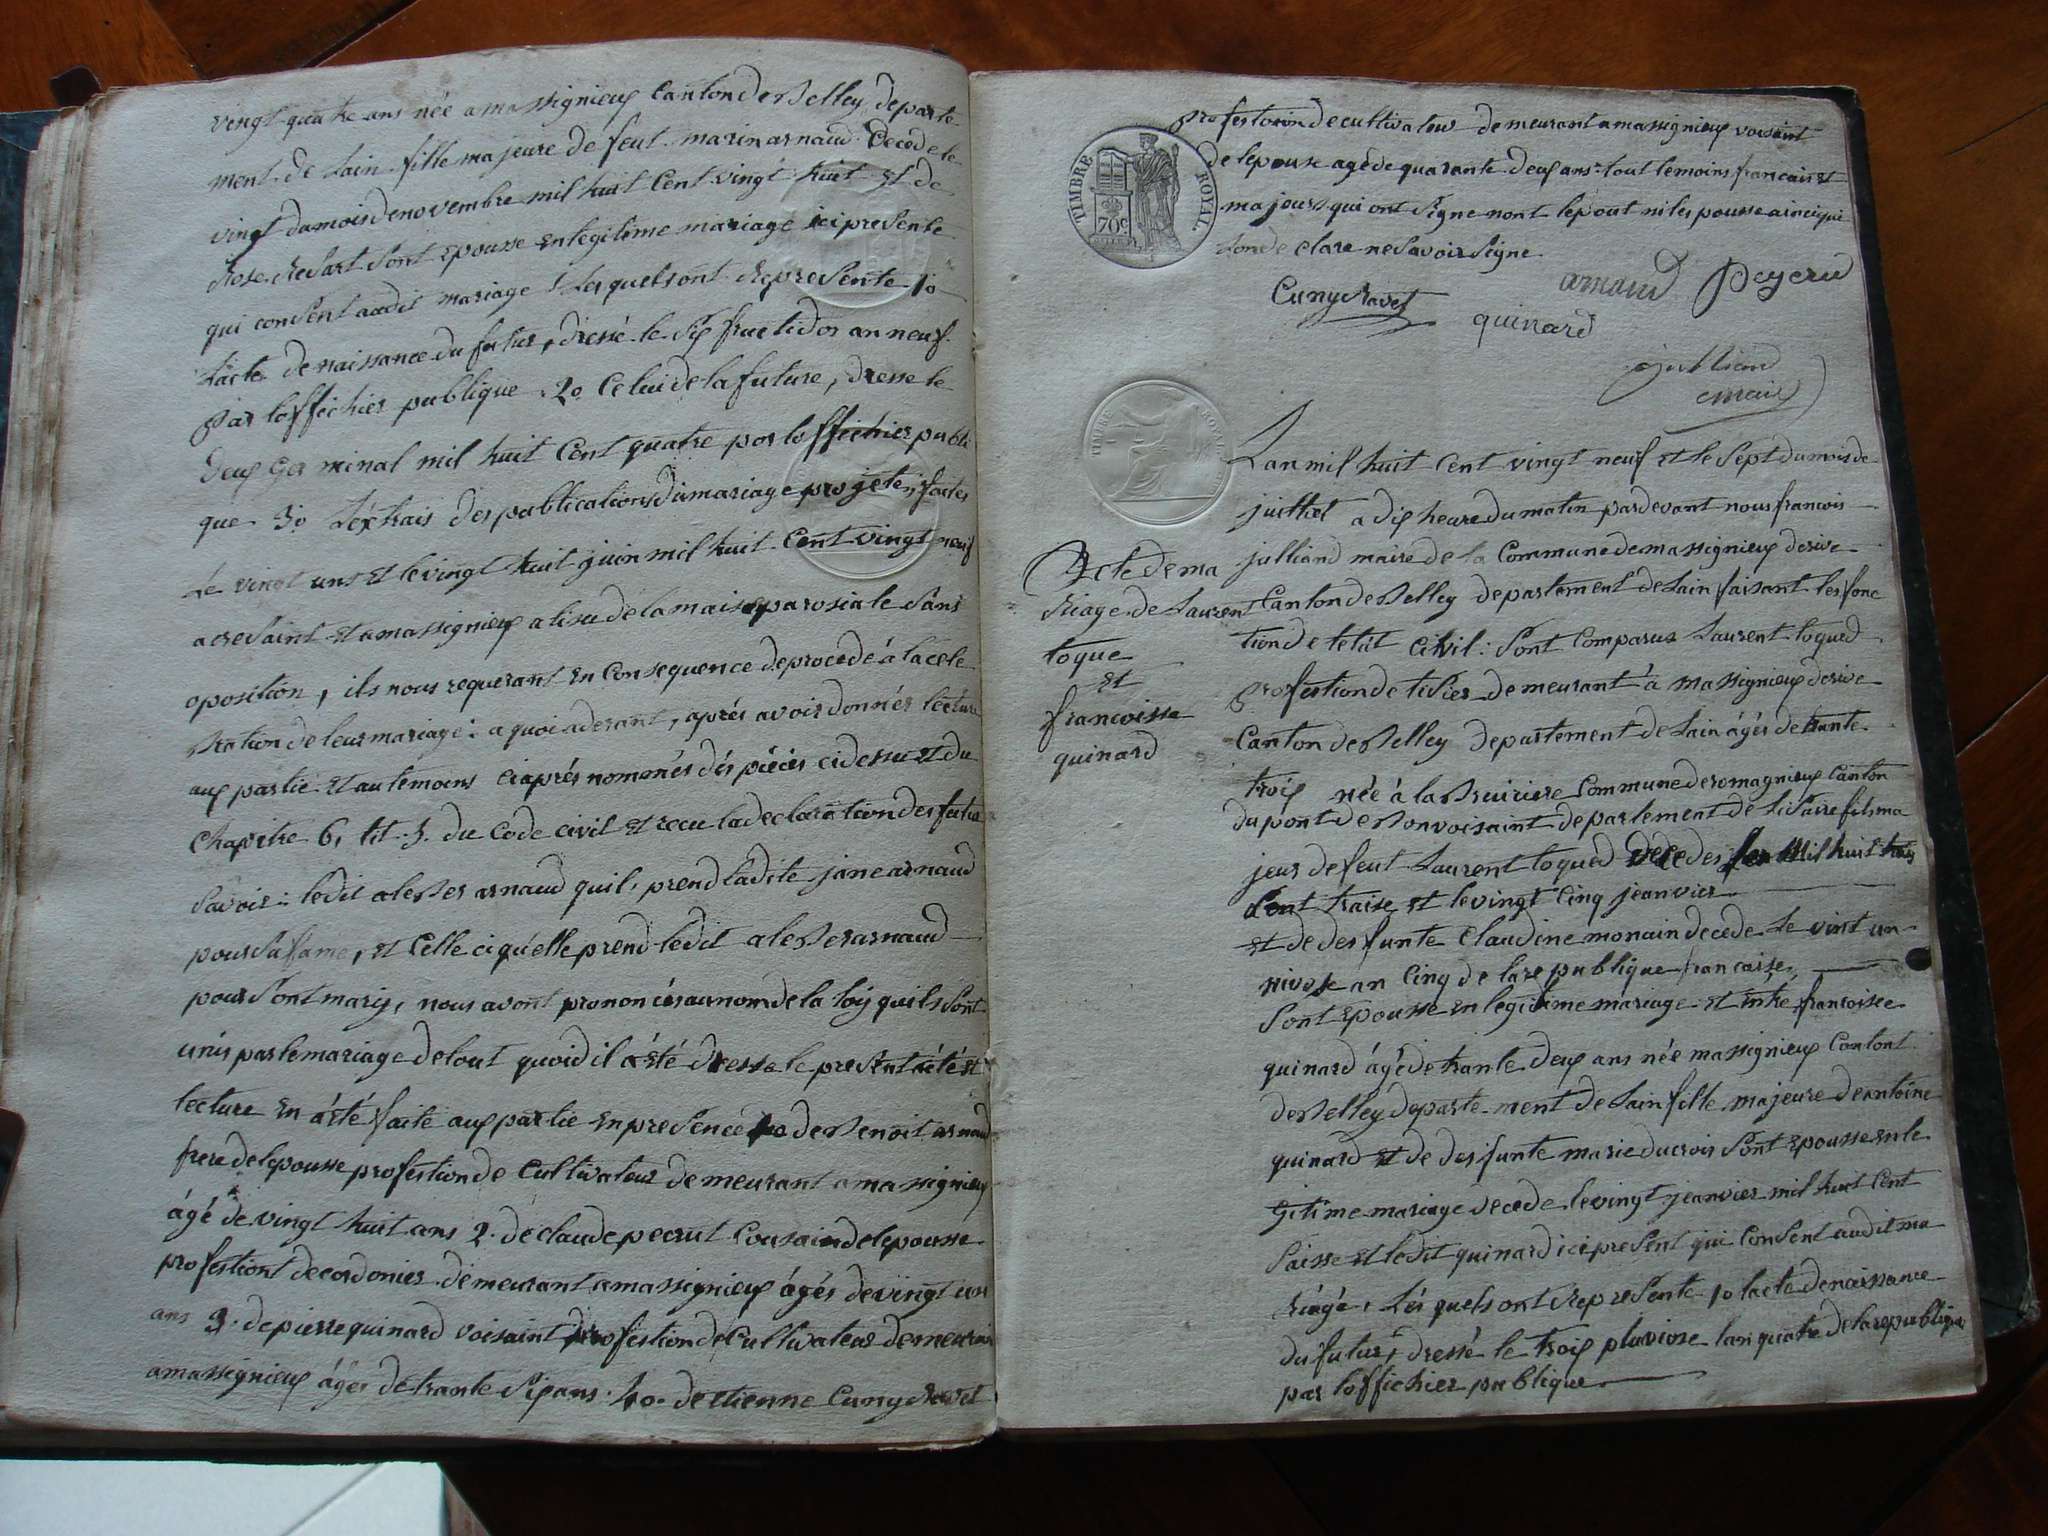 vingt quatre ans née a massignieux Canton de Belley departe-
ment de Lain fille majeure de feut marin arnaud Decede le
vingt du mois de novembre mil huit Cent vingt huit et de
Rose Resart sont epousse en legitime mariage ici presente
qui consent audit mariage Lesquels ont Represente 1o
Lacte de naissance du futur, dressé le Six fructidor an neuf
par loffichier publique 2o Celui de la future, dresse le
deux Germinal mil huit Cent quatre par loffichier publi
que 3o Léxtrais des publications du mariage projeteé, faites
Le vingt uns et le vingt huit juin mil huit Cent vingt neuf
a cresaint et a massignieux a lisu de la maise parosiale Sans
oposition, ils nous requerant en Consequence de procedé á la cele
Bration de leur mariage : a quoi aderant, aprés avoir donnér lécture
aux partié et au temoins ciaprés nommés dés piécés cidessu et du
Chapitre 6, tit. 5. du Code civil et recu la declaration des futur
Savoir : ledit aleBer arnaud quil, prend ladite jane arnaud
pour Sa fame, et Celle ci qu'elle prend ledit aleBer arnaud
pour Sont mary, nous avont prononcés au nom de la loy quils Sont
unis par le mariage de tout quoid il áété dresse le présent acté et
lecture en áété faite aux partie en presence de Benoit arnaud
frere de lepousse profestion de Cultivateur demeurant a massignieux
ágé de vingt huit ans 2. de claude pecrut Cousain de lepousse
profestiont de cordonier demeurant a massignieux ágés de vingt un
ans 3. de pierre quinard voisaint profestion de Cultivateur demeurant
a massignieux ágés de trante Six ans. 4o. de etienne Cuny Ravet
profestion de cultivateur demeurant a massignieux voisaint
de lepouse agé de quarante deux ans tout temoins francais et
majours qui ont Signe nont lepout ni lepousse ainci qui
Lon declare ne Savoir Signe
TIMBRE ROYAL
70c
Cuny Ravet
arnaud
peyeru
quinard
julliand
maire
TIMBRE ROYAL
Acte de ma
Riage de Laurent
toque
et
francoisse
quinard
Lan mil huit Cent vingt neuf et le Sept du mois de
juilliet a dix heure du matin par devant nous francois
julliand maire de la Commune de massignieux de rive
Canton de Belley departement de Lain faisant les fonc
tion de letát Civil : Sont Comparus Laurent toqued
profestion de tisier demeurant á massignieux de rive
Canton de Belley departement de Lain ágés de trante
troix née á la Bruiriere Commune de romagnieux Canton
du pont de Bonvoisaint departement de Lisaire fils ma
jeur de feut Laurent toqued decedes mil huit
Cent traise et le vingt Cinq jeanvier
et de defunte Claudine monain decede Le vint un
nivose an Cinq de la republique francaise,
Sont Epousse en legitime mariage et entre francoisee
quinard ágé de trante deux ans née massignieux Contont
de Belley departe-ment de Lain fille majeure de antoine
quinard et de defunte marie ducrois Sont epousse en le
gitime mariage decede le vingt jeanvier mil huit Cent
Saisse et ledit quinard ici present qui Consent audit ma
riágé. Lés quels ont Represente 1o lacte de naissance
du futur, dressé le troix pluviose lan quatre de la republique
par loffichier publique